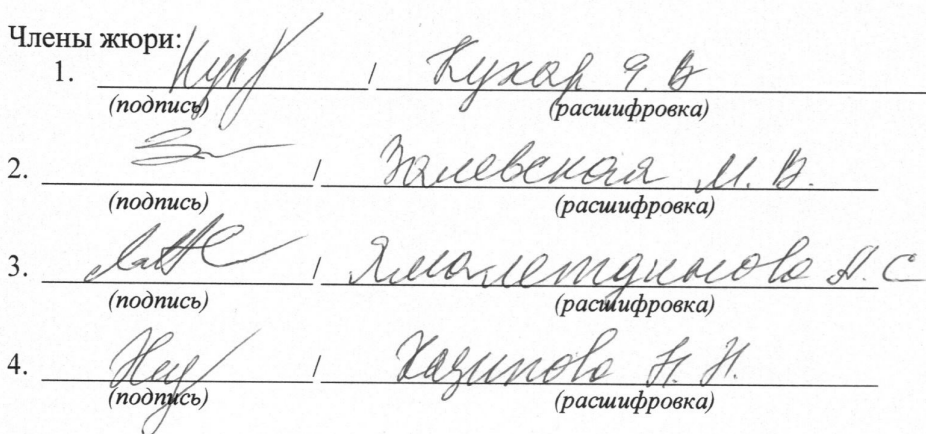 Члены жюри:
1. / Кухар Я. В
(подпись) (расшифровка)
2. / Залевская М. В.
(подпись) (расшифровка)
3. / Ямалетдинова С
(подпись) (расшифровка)
4. / Н. Н.
(подпись) (расшифровка)